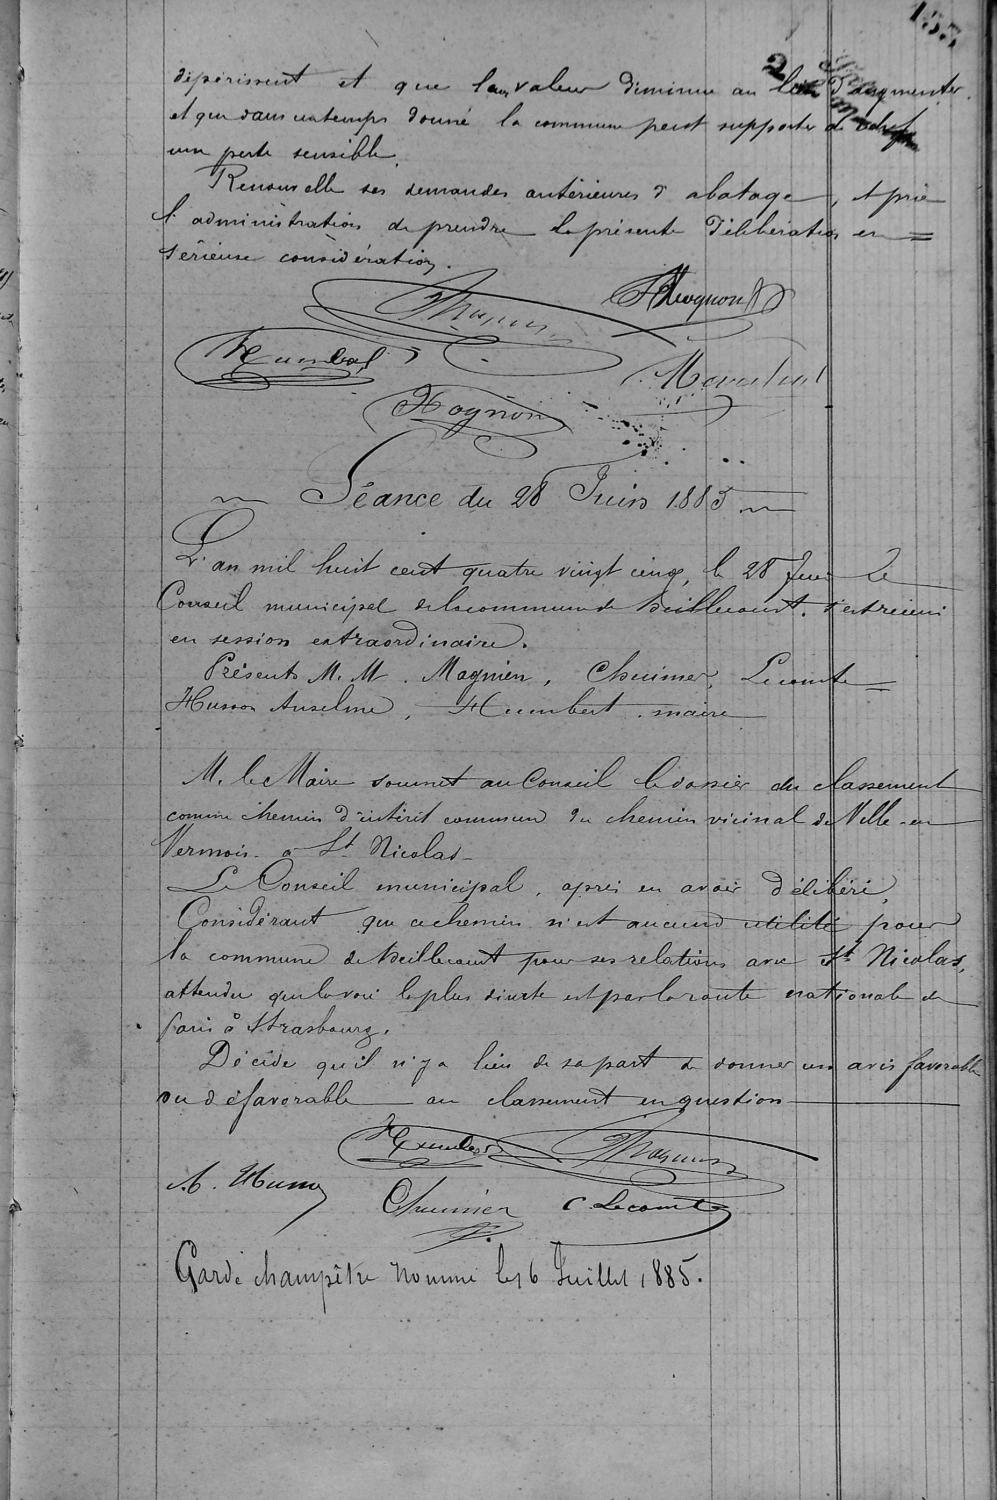 155
dépérissent et que leur valeur diminue au lieu d'augmenter
et que dans un temps donné la commune peut supporter de ce chef
une perte sensible.
Renouvelle ses demandes antérieures d'abatage, et prie
l'administration de prendre la présente délibération en =
sérieuse considération.
Magnien
Humbert
Hognon
Séance du 28 Juin 1885
L'an mil huit cent quatre vingt cinq, le 28 Juin le
Conseil municipal de la commune de Seillecourt, s'est réuni
en session extraordinaire.
Présents M. M. Magnien, Chuinier, Lecomte =
Husson Anselme, Humbert, maire
M. le Maire soumet au Conseil le dossier du classement
comme chemin d'intérêt commun du chemin vicinal de Ville-en
Vermois à St Nicolas
Le Conseil municipal, après en avoir délibéré,
Considérant que ce chemin n'est aucune utilité pour
la commune de Seillecourt pour ses relations avec St Nicolas,
attendu que la voie la plus directe est par la route nationale de
Paris à Strasbourg.
Décide qu'il n'y a lieu de sa part de donner un avis favorable
ou défavorable au classement en question
Humbert Magnien
A. Husson Chuinier C Lecomte
Garde champêtre nommé le 16 Juillet 1885.